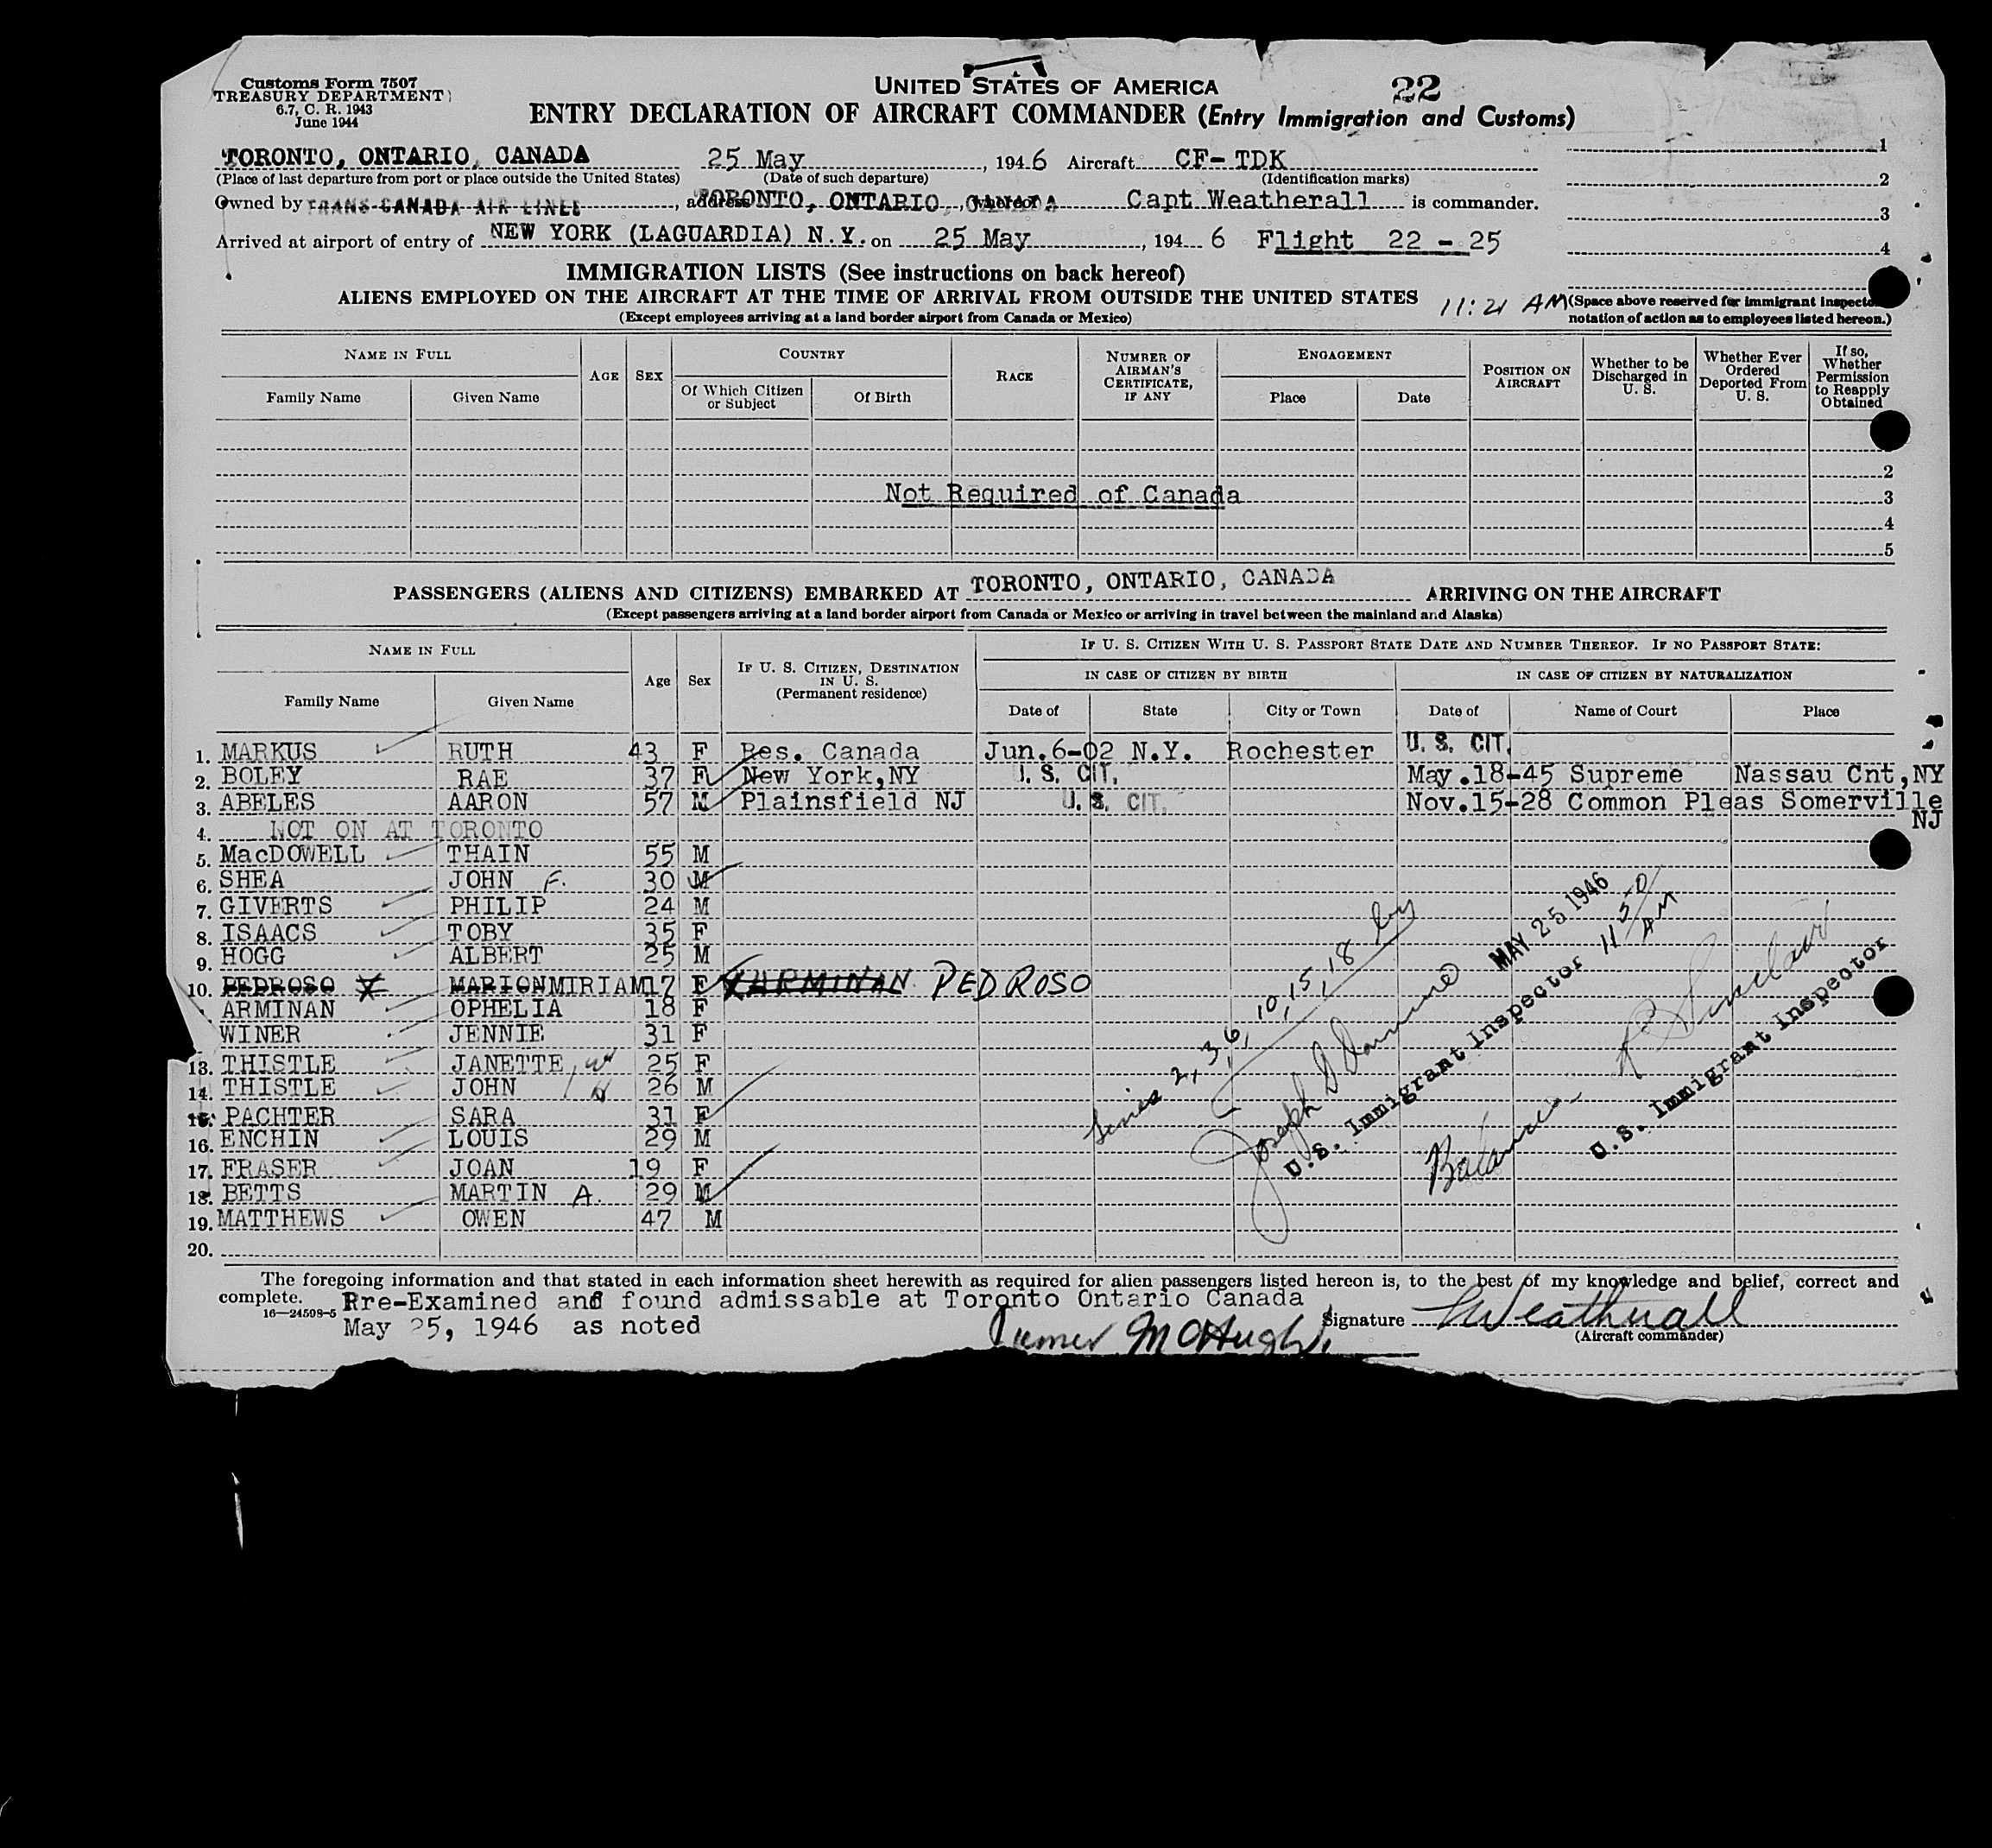 Customs Form 7507
TREASURY DEPARTMENT
6.7, C. R. 1943
June 1944
UNITED STATES OF AMERICA
22
ENTRY DECLARATION OF AIRCRAFT COMMANDER (Entry Immigration and Customs)
TORONTO, ONTARIO, CANADA 25 May, 1946 Aircraft CF-TDK 1
(Place of last departure from port or place outside the United States) (Date of such departure) (Identification marks) 2
Owned by TRANS-CANADA AIR LINES, address TORONTO, ONTARIO, CANADA, whereof Capt Weatherall is commander. 3
Arrived at airport of entry of NEW YORK (LAGUARDIA) N.Y. on 25 May, 1946 Flight 22 - 25 4
IMMIGRATION LISTS (See instructions on back hereof)
ALIENS EMPLOYED ON THE AIRCRAFT AT THE TIME OF ARRIVAL FROM OUTSIDE THE UNITED STATES 11:21 AM (Space above reserved for immigrant inspector
(Except employees arriving at a land border airport from Canada or Mexico) notation of action as to employees listed hereon.)
NAME IN FULL
Family Name Given Name
AGE SEX
COUNTRY
Of Which Citizen or Subject Of Birth
RACE
NUMBER OF AIRMAN'S CERTIFICATE, IF ANY
ENGAGEMENT
Place Date
POSITION ON AIRCRAFT
Whether to be Discharged in U. S.
Whether Ever Ordered Deported From U. S.
If so, Whether Permission to Reapply Obtained
2
Not Required of Canada 3
4
5
PASSENGERS (ALIENS AND CITIZENS) EMBARKED AT TORONTO, ONTARIO, CANADA ARRIVING ON THE AIRCRAFT
(Except passengers arriving at a land border airport from Canada or Mexico or arriving in travel between the mainland and Alaska)
NAME IN FULL
Family Name Given Name
Age Sex
IF U. S. CITIZEN, DESTINATION IN U. S.
(Permanent residence)
IF U. S. CITIZEN WITH U. S. PASSPORT STATE DATE AND NUMBER THEREOF. IF NO PASSPORT STATE:
IN CASE OF CITIZEN BY BIRTH IN CASE OF CITIZEN BY NATURALIZATION
Date of State City or Town Date of Name of Court Place
1. MARKUS RUTH 43 F Res. Canada Jun.6-02 N.Y. Rochester U. S. CIT.
2. BOLEY RAE 37 F New York,NY U. S. CIT. May.18-45 Supreme Nassau Cnt,NY
3. ABELES AARON 57 M Plainsfield NJ U. S. CIT. Nov.15-28 Common Pleas Somerville NJ
4. NOT ON AT TORONTO
5. MacDOWELL THAIN 55 M
6. SHEA JOHN F. 30 M
7. GIVERTS PHILIP 24 M
8. ISAACS TOBY 35 F
9. HOGG ALBERT 25 M
10. PEDROSO MARION MIRIAM 17 F ARMINAN PEDROSO
ARMINAN OPHELIA 18 F
WINER JENNIE 31 F
13. THISTLE JANETTE 25 F
14. THISTLE JOHN 26 M
15. PACHTER SARA 31 F
16. ENCHIN LOUIS 29 M
17. FRASER JOAN 19 F
18. BETTS MARTIN A. 29 M
19. MATTHEWS OWEN 47 M
20.
Lines 2, 3, 6, 10, 15, 18 by
Joseph
U. S. Immigrant Inspector
MAY 25 1946
11 50 AM
Balance
R Sinclair
U. S. Immigrant Inspector
The foregoing information and that stated in each information sheet herewith as required for alien passengers listed hereon is, to the best of my knowledge and belief, correct and
complete. Pre-Examined and found admissable at Toronto Ontario Canada
16—24598-5
May 25, 1946 as noted
McHugh
Signature Weatherall
(Aircraft commander)